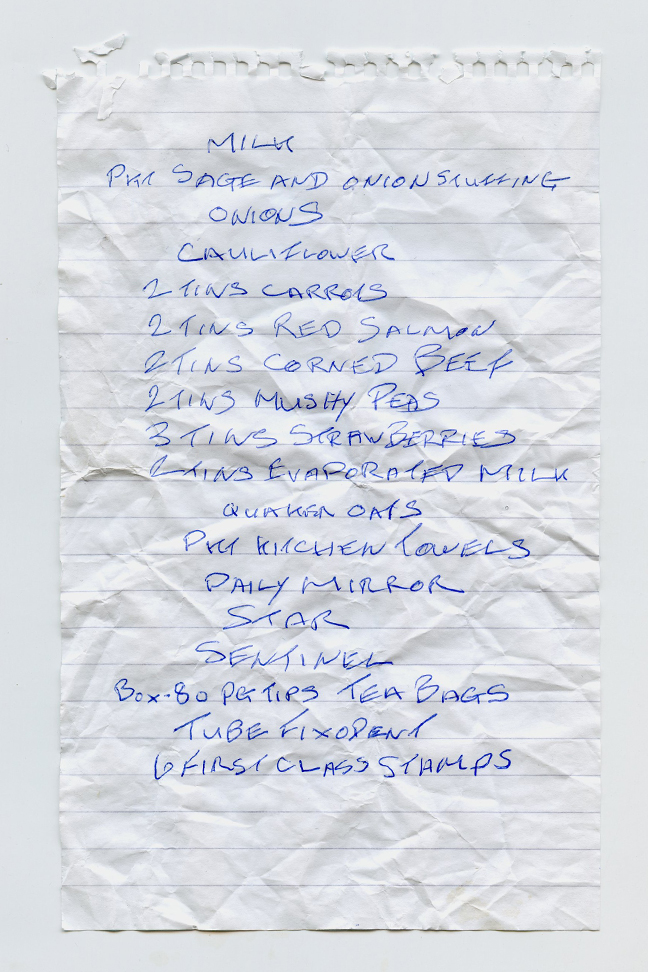 MILK
PKT SAGE AND ONION STUFFING
ONIONS
CAULIFLOWER
2 TINS CARROTS
2 TINS RED SALMON
2 TINS CORNED BEEF
2 TINS MUSHY PEAS
3 TINS STRAWBERRIES
2 TINS EVAPORATED MILK
QUAKER OATS
PKT KITCHEN TOWELS
DAILY MIRROR
STAR
SENTINEL
BOX-80 PG TIPS TEA BAGS
TUBE FIXODENT
6 FIRST CLASS STAMPS